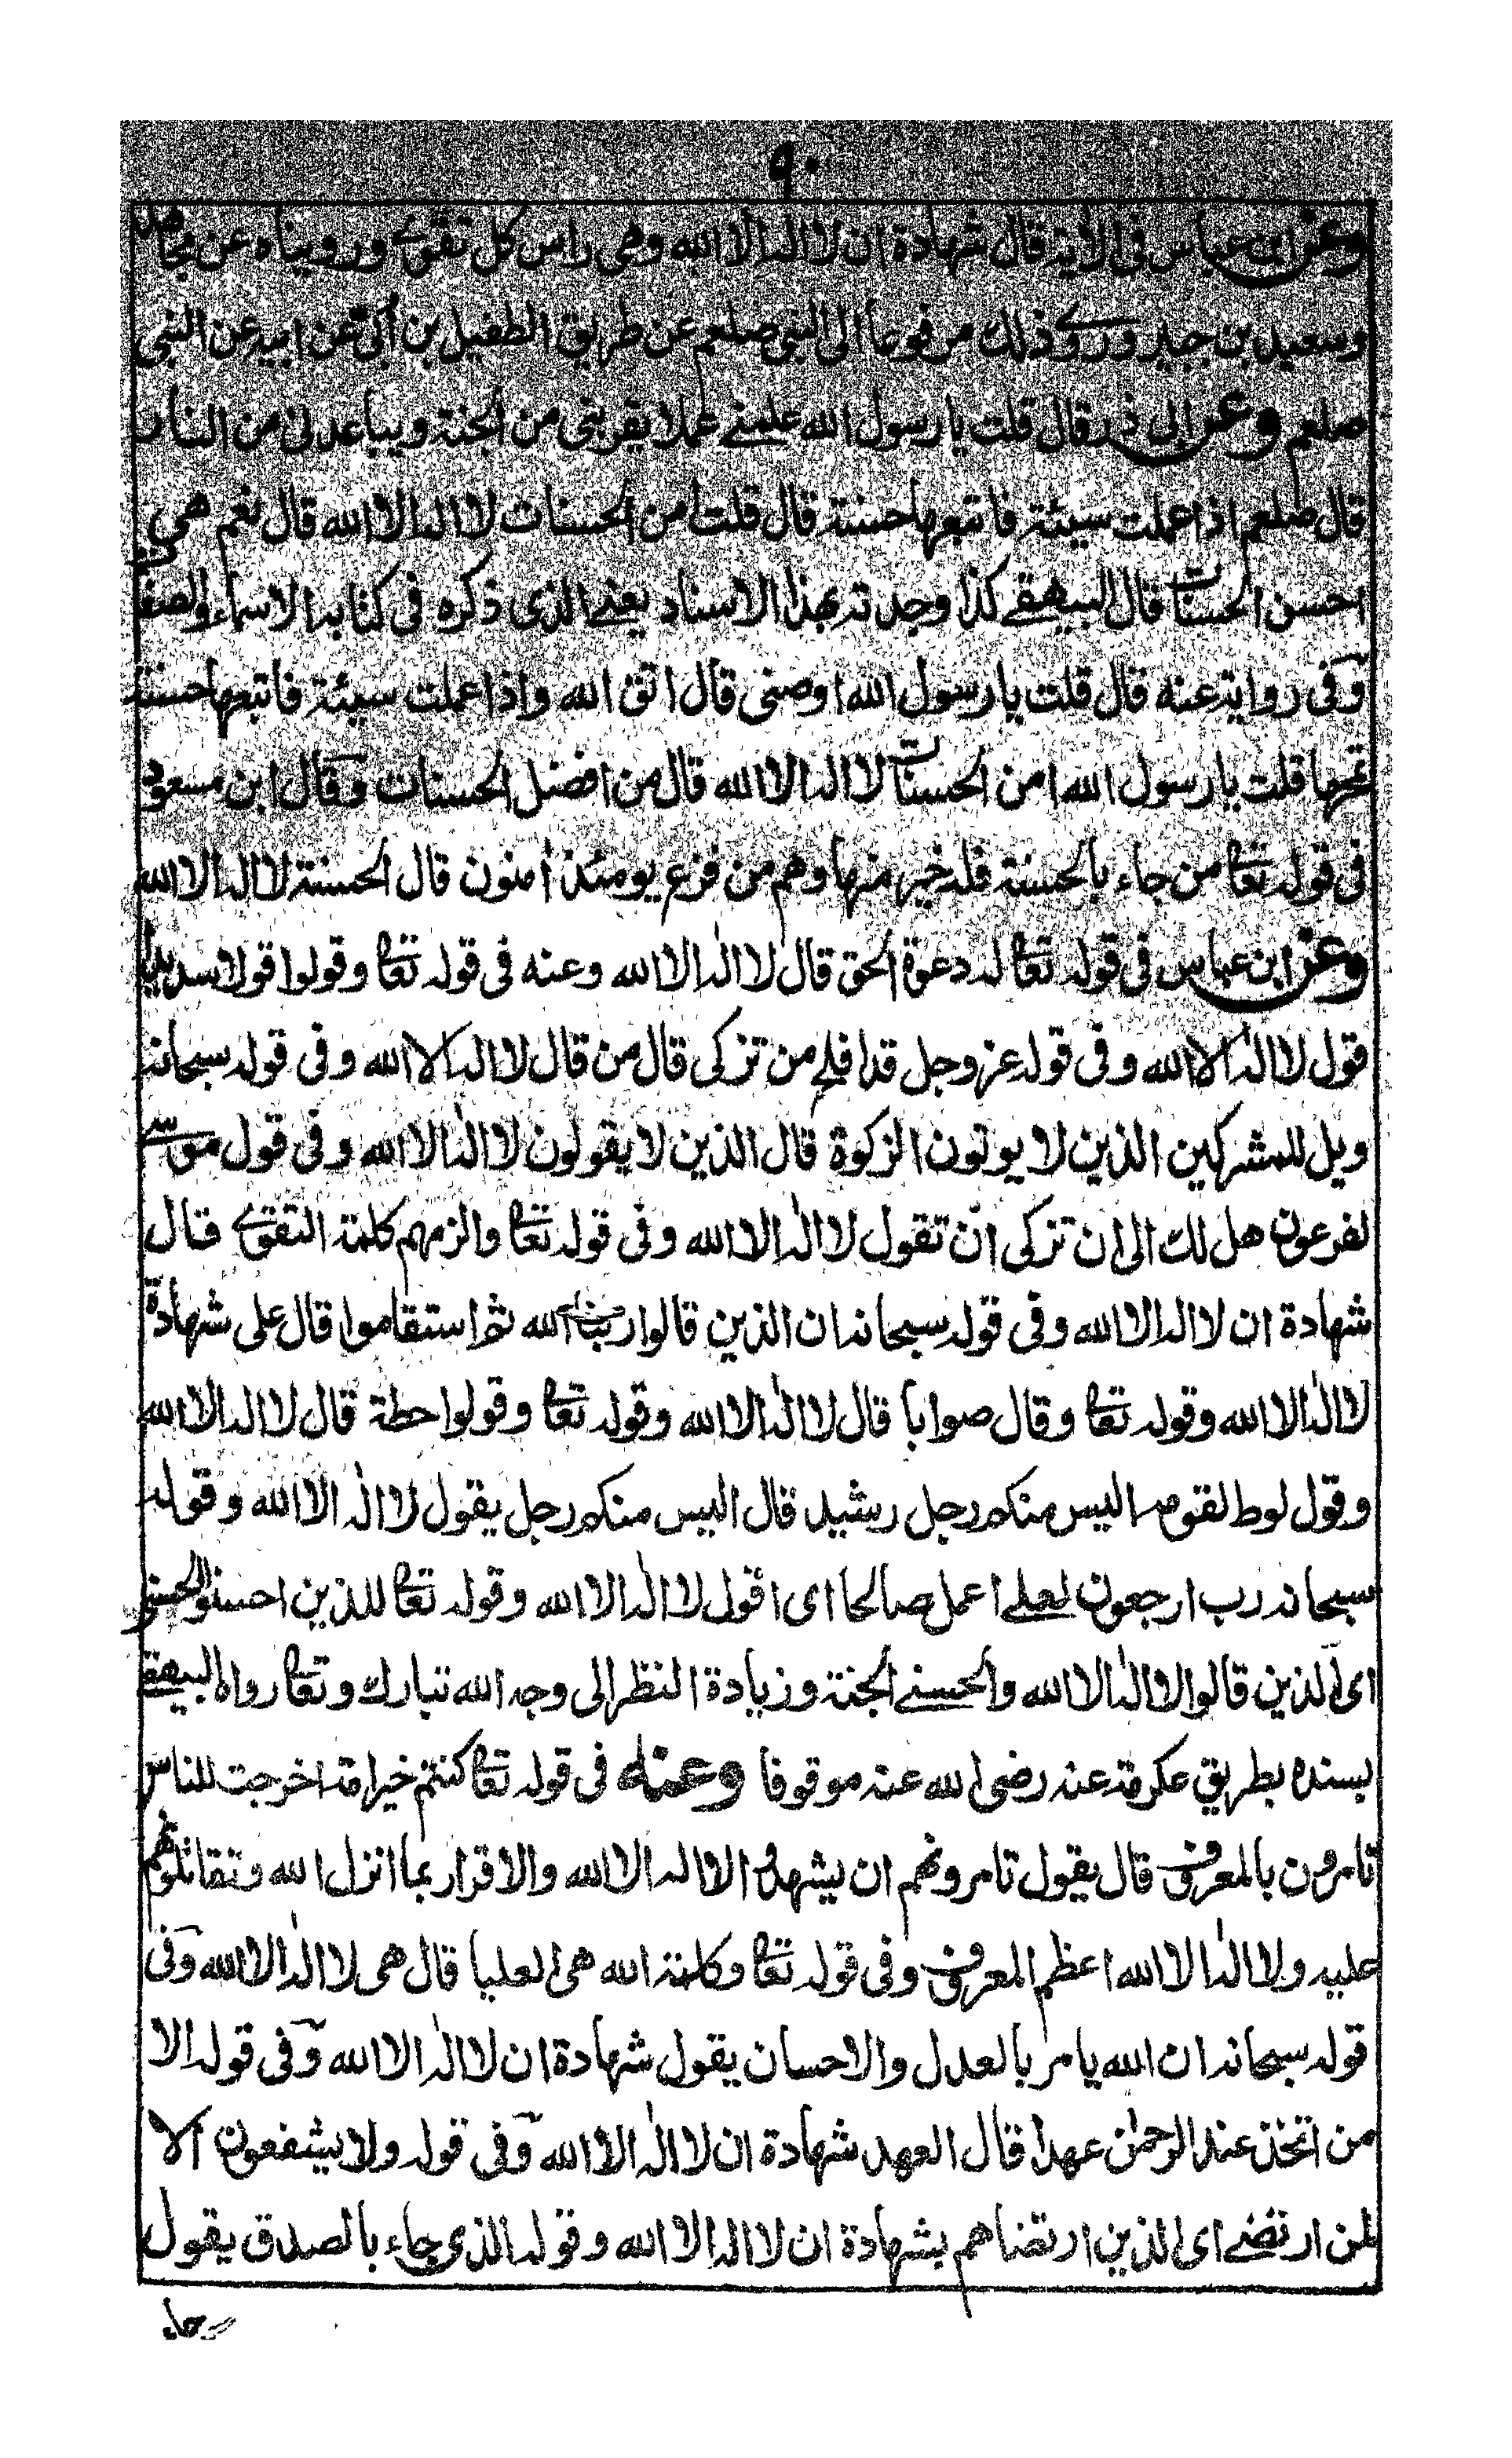 ٩٠
وعن ابن عباس فى الاية قال شهادة ان لا اله الا الله وهى راس كل تقوى ورويناه عن مجاهد
وسعيد بن جبير وروى ذلك مرفوعا الى النبى صلعم عن طريق الطفيل بن أبى عن ابيه عن النبى
صلعم وعن ابى ذر قال قلت يا رسول الله علمنے عملا يقربنى من الجنة ويباعدنى من النار
قال صلعم اذا عملت سيئة فاتبعها حسنة قال قلت أمن الحسنات لا اله الا الله قال نعم هى
احسن الحسنات قال البيهقے كذا وجدته بهذا الاسناد يعنے الذى ذكره فى كتابه الاسماء والصفا
وفى رواية عنه قال قلت يا رسول الله اوصنى قال اتق الله واذا عملت سيئة فاتبعها حسنة
تمحها قلت يا رسول الله امن الحسنات لا اله الا الله قال من افضل الحسنات وقال ابن مسعود
فى قوله تعا من جاء بالحسنة فله خير منها وهم من فزع يومئذ أمنون قال الحسنة لا اله الا الله
وعن ابن عباس فى قوله تعا له دعوة الحق قال لا اله الا الله وعنه فى قوله تعا وقولوا قولا سديدا
قول لا اله الا الله وفى قوله عز وجل قد افلح من تزكى قال من قال لا اله الا الله وفى قوله سبحانه
ويل للمشركين الذين لا يوتون الزكوة قال الذين لا يقولون لا اله الا الله وفى قول موسے
لفرعون هل لك الى ان تزكى ان تقول لا اله الا الله وفى قوله تعا والزمهم كلمة التقوى قال
شهادة ان لا اله الا الله وفى قوله سبحانه ان الذين قالوا ربنا الله ثم استقاموا قال على شهادة
لا اله الا الله وقوله تعا وقال صوابا قال لا اله الا الله وقوله تعا وقولوا حطة قال لا اله الا الله
وقول لوط لقومه اليس منكم رجل رشيد قال اليس منكم رجل يقول لا اله الا الله وقوله
سبحانه رب ارجعون لعلے اعمل صالحا اى اقول لا اله الا الله وقوله تعا للذين احسنوا الحسنى
اى الذين قالوا لا اله الا الله والحسنے الجنة وزيادة النظر الى وجه الله تبارك وتعا رواه البيهقے
بسنده بطريق عكرمة عنه رضى الله عنه موقوفا وعنه فى قوله تعا كنتم خير امة اخرجت للناس
تامرون بالمعروف قال يقول تامرونهم ان يشهدوا الا اله الا الله والاقرار بما انزل الله وتقاتلونهم
عليه ولا اله الا الله اعظم المعروف وفى قوله تعا وكلمة الله هى العليا قال هى لا اله الا الله وفى
قوله سبحانه ان الله يامر بالعدل والاحسان يقول شهادة ان لا اله الا الله وفى قوله الا
من اتخذ عند الرحمن عهدا قال العهد شهادة ان لا اله الا الله وفى قوله ولا يشفعون الا
لمن ارتضے اى الذين ارتضاهم بشهادة ان لا اله الا الله وقوله الذى جاء بالصدق يقول
جاء